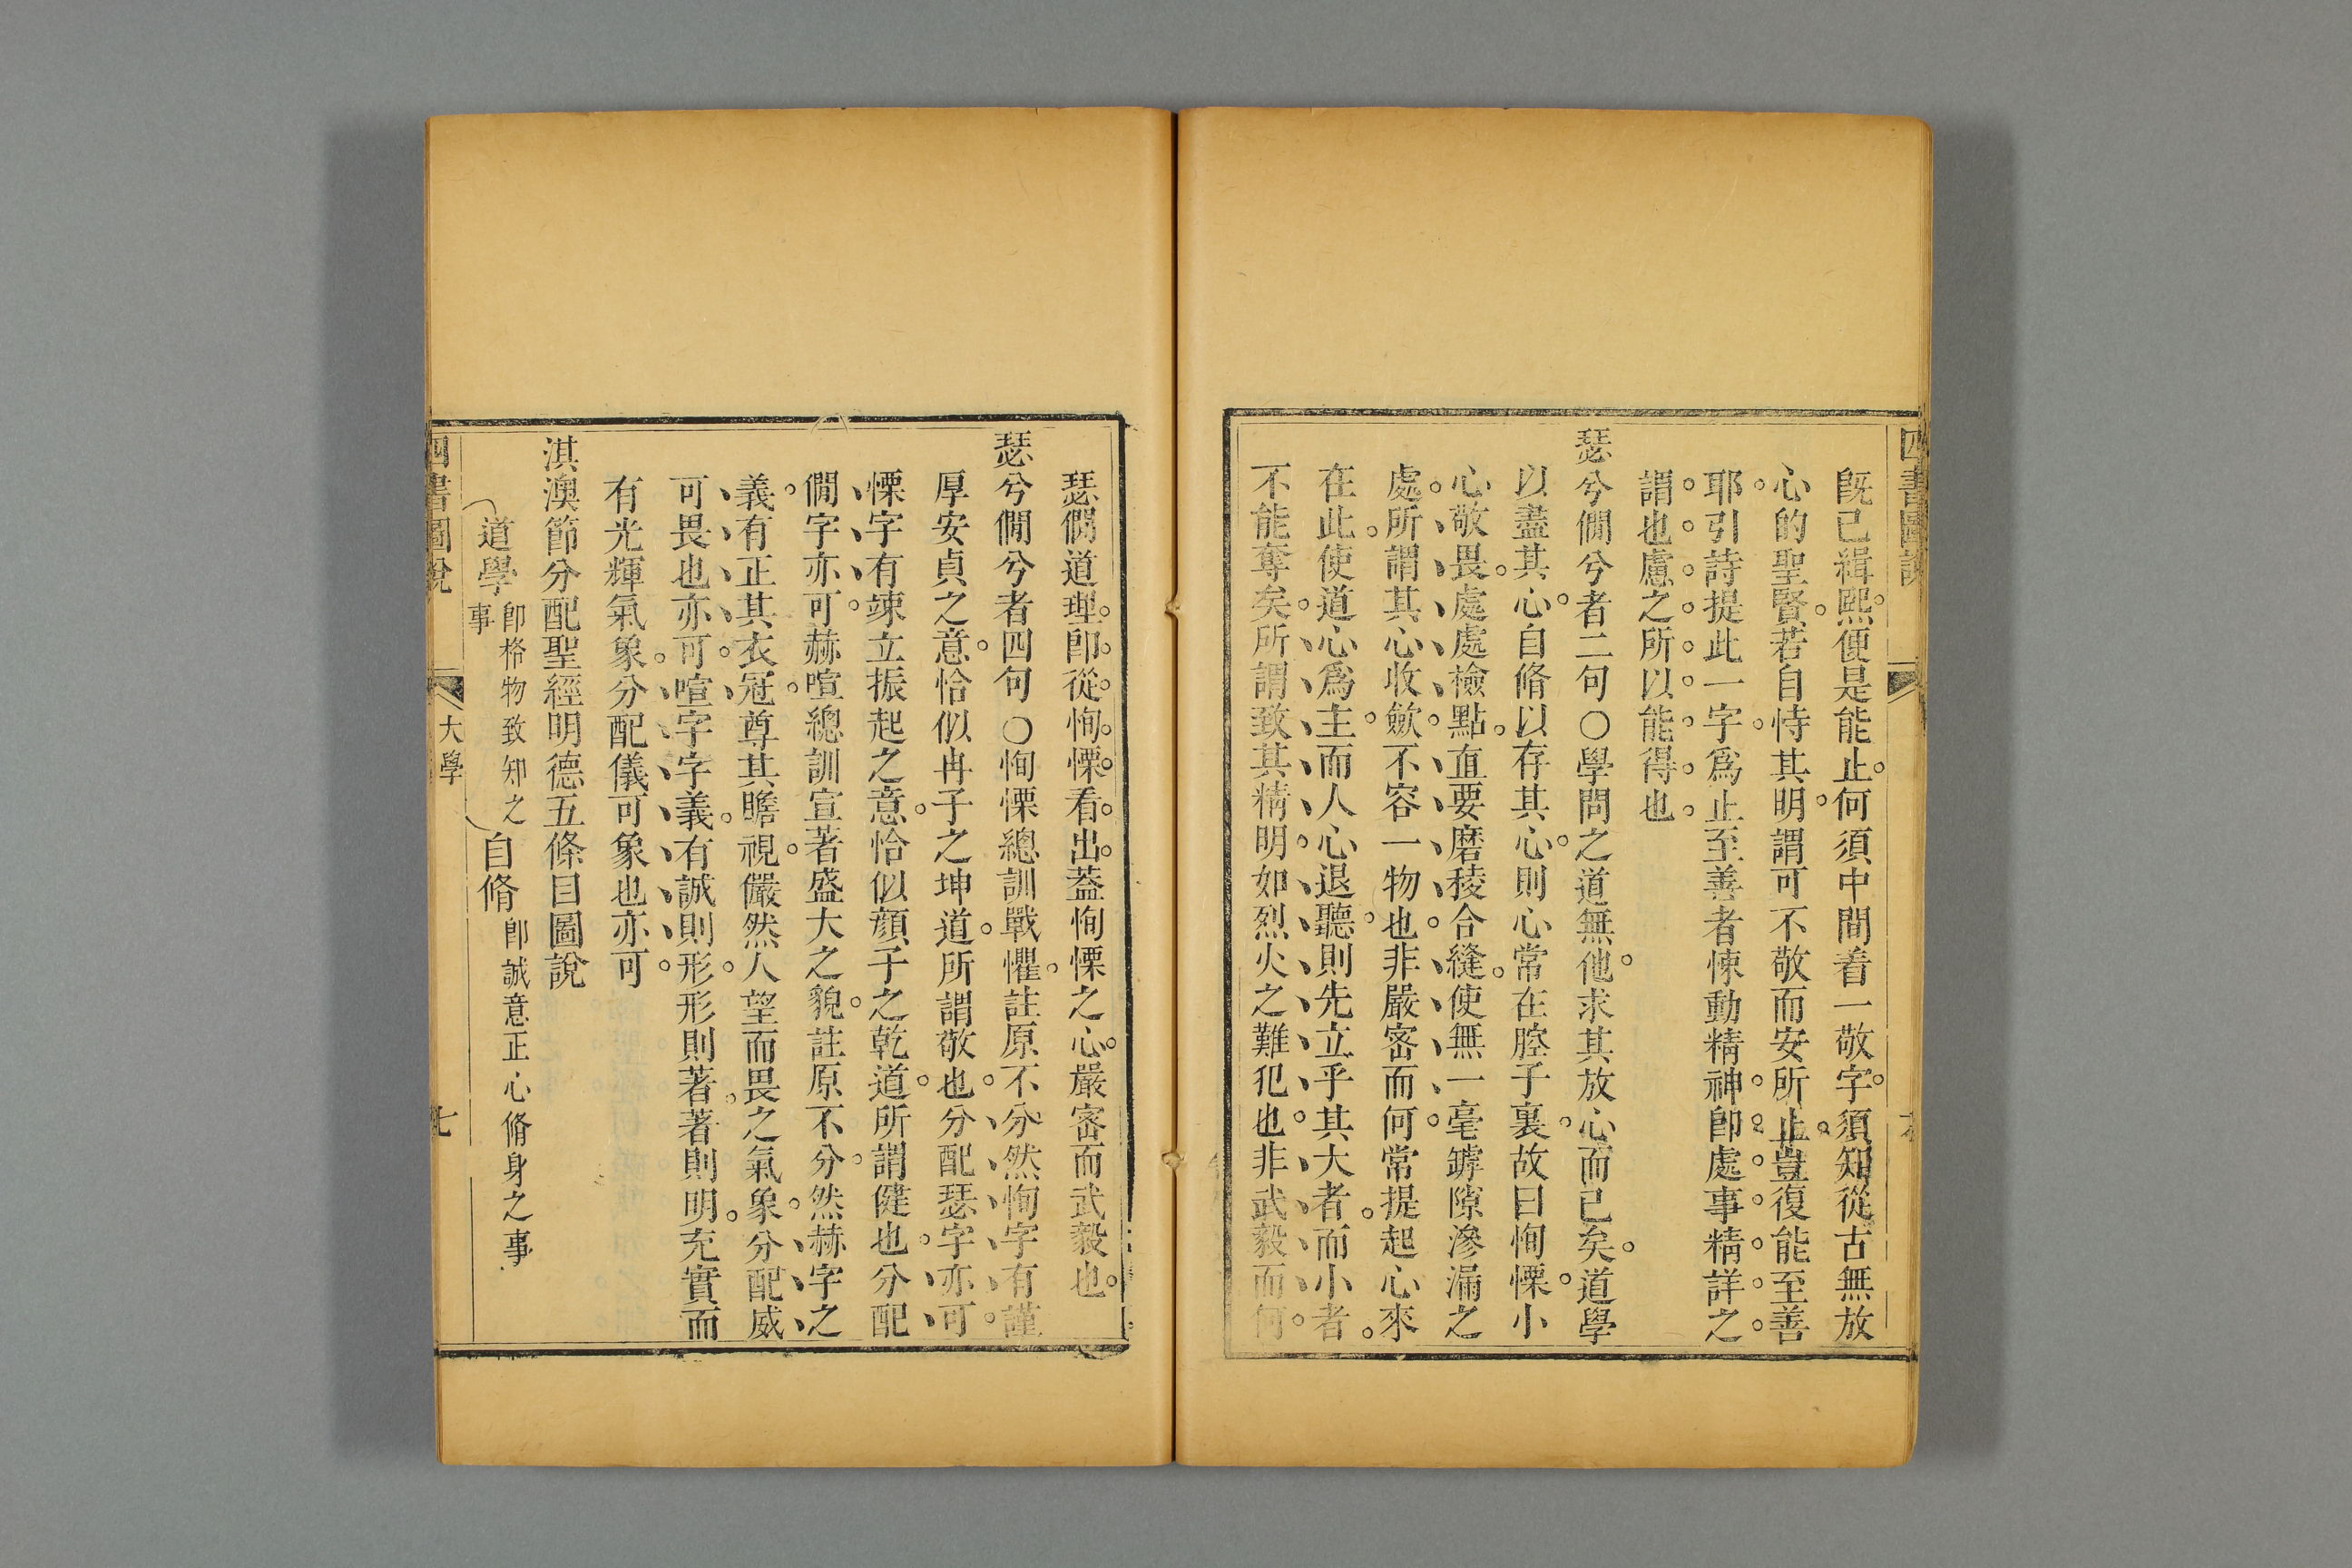 四書圖說
旣已緝熙便是能止何須中間着一敬字須知從古無放
心的聖賢若自恃其明謂可不敬而安所止豈復能至善
耶引詩提此一字爲止至善者悚動精神卽處事精詳之
謂也慮之所以能得也
瑟兮僩兮者二句○學問之道無他求其放心而已矣道學
以盡其心自脩以存其心則心常在腔子裏故曰恂慄小
心敬畏處處檢點直要磨稜合縫使無一毫罅隙滲漏之
處所謂其心收歛不容一物也非嚴密而何常提起心來
在此使道心爲主而人心退聽則先立乎其大者而小者
不能奪矣所謂致其精明如烈火之難犯也非武毅而何
瑟僩道理卽從恂慄看出葢恂慄之心嚴密而武毅也
瑟兮僩兮者四句○恂慄總訓戰懼註原不分然恂字有謹
厚安貞之意恰似冉子之坤道所謂敬也分配瑟字亦可
慄字有竦立振起之意恰似顏子之乾道所謂健也分配
僩字亦可赫喧總訓宣著盛大之貌註原不分然赫字之
義有正其衣冠尊其瞻視儼然人望而畏之氣象分配威
可畏也亦可喧字字義有誠則形形則著著則明充實而
有光輝氣象分配儀可象也亦可
淇澳節分配聖經明德五條目圖說
道學 卽格物致知之事 自脩 卽誠意正心脩身之事
四書圖說 大學 七